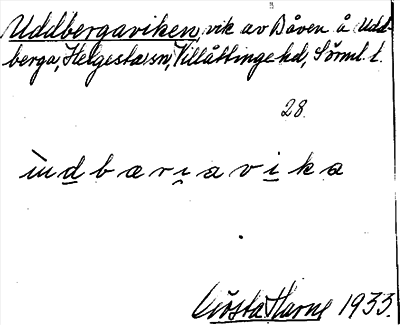 Uddbergaviken, vik av Båven å Udd-
berga, Helgesta sn, Villåttinge hd, Sörml. l.
28.
ùdbæriavika
Gösta Harne 1933.